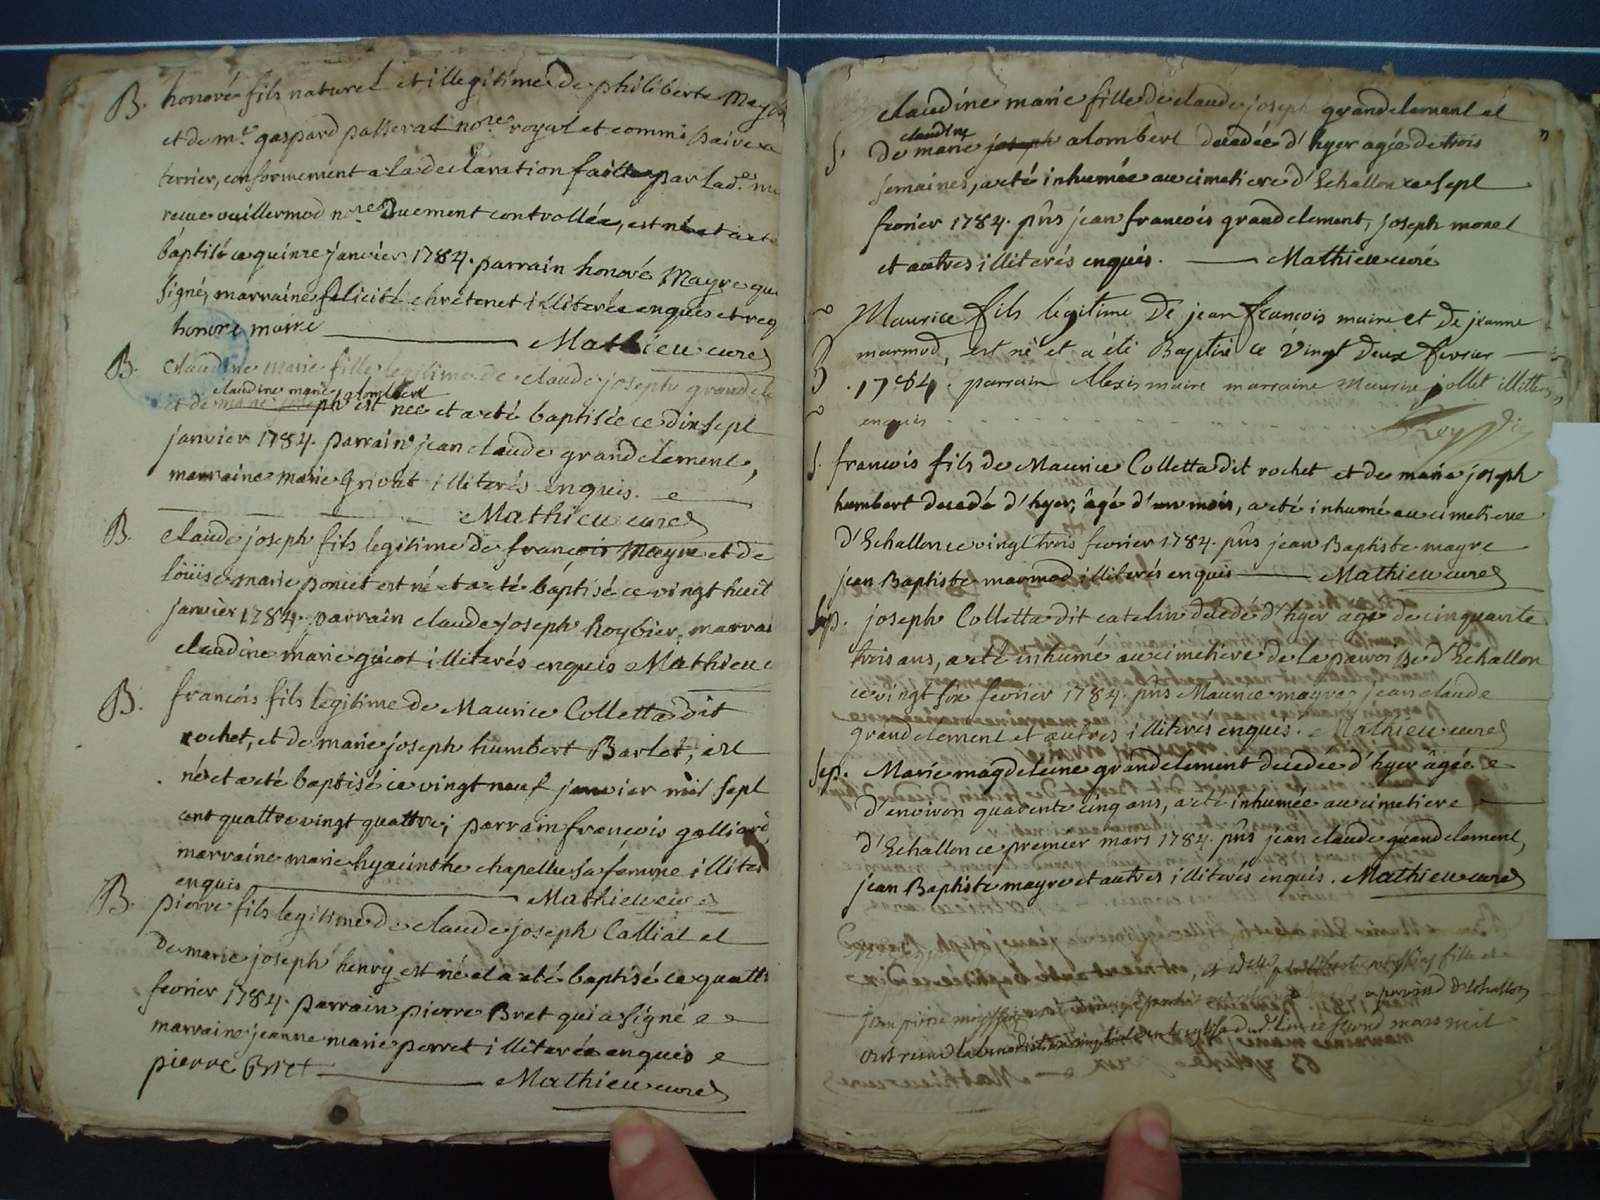 B. honoré fils naturel et illegitime de philiberte Mayre
et de mr. gaspard passerat nore royal et commi
terrier, conformement a la declaration faite par lade.
recue vuillermod nore duement controllée, est né et a eté
baptisé ce quinze janvier 1784. parrain honoré Mayre qui
signé, marraine felicité chretenet illiterée enquis et req
honoré maire Mathieu curé
B. claudine marie fille legitime de claude joseph grandcle
claudine marie alombert
et de marie joseph est née et a eté baptisée ce dix sept
janvier 1784. parrain jean claude grandclement,
marraine marie Grivat illiterés enquis.
Mathieu curé
B. claude joseph fils legitime de françois Mayre et de
loüise marie poncet est né et a eté baptisé ce vingt huit
janvier 1784. parrain claude joseph Roybier, marrai
claudine marie guiot illiterés enquis Mathieu c
B. françois fils legitime de Maurice Colletta dit
rochet, et de marie joseph humbert Barlet, est
né et a eté baptisé ce vingt neuf janvier mil sept
cent quattre vingt quattre; parrain françois galliard
marraine marie hyacinthe chapellu sa femme illiter
enquis Mathieu curé
B. pierre fils legitime de claude joseph Calliat et
de marie joseph henry est né et a eté baptisé ce quattr
fevrier 1784. parrain pierre Bret qui a signé
marraine jeanne marie perret illiterée enquis
pierre Bret Mathieu curé
claudine marie fille de claude joseph grandclement et
claudine
S. de marie joseph alombert decedée d'hyer agée de trois
semaines, a eté inhumée au cimetiere d'Echallon ce sept
fevrier 1784. pñs jean francois grandclement, joseph monet
et autres illiterés enquis. Mathieu curé
Maurice fils légitime de jean françois maire et de jeanne
marmod, est né et a été Baptisé ce vingt deux fevrier
B. 1784. parrain Alexis maire marraine Maurise jollet illitter
enquis Rey
S. francois fils de Maurice Colletta dit rochet et de marie joseph
humbert decedé d'hyer, âgé d'un mois, a eté inhumé au cimetiere
d'Echallon ce vingt trois fevrier 1784. pñs jean Baptiste mayre
jean Baptiste marmod illiterés enquis Mathieu curé
Sep. joseph Colletta dit catelin decedé d'hyer agé de cinquante
trois ans, a eté inhumé au cimetiere de la parroisse d'Echallon
ce vingt six fevrier 1784. pñs Maurice mayre jean claude
grandclement et autres illiterés enquis. Mathieu curé
Sep. Marie magdeleine grandclement decedée d'hyer âgée
d'environ quarente cinq ans, a eté inhumée au cimetiere
d'Echallon ce premier mars 1784. pñs jean claude grandclement,
jean Baptiste mayre et autres illiterés enquis. Mathieu curé